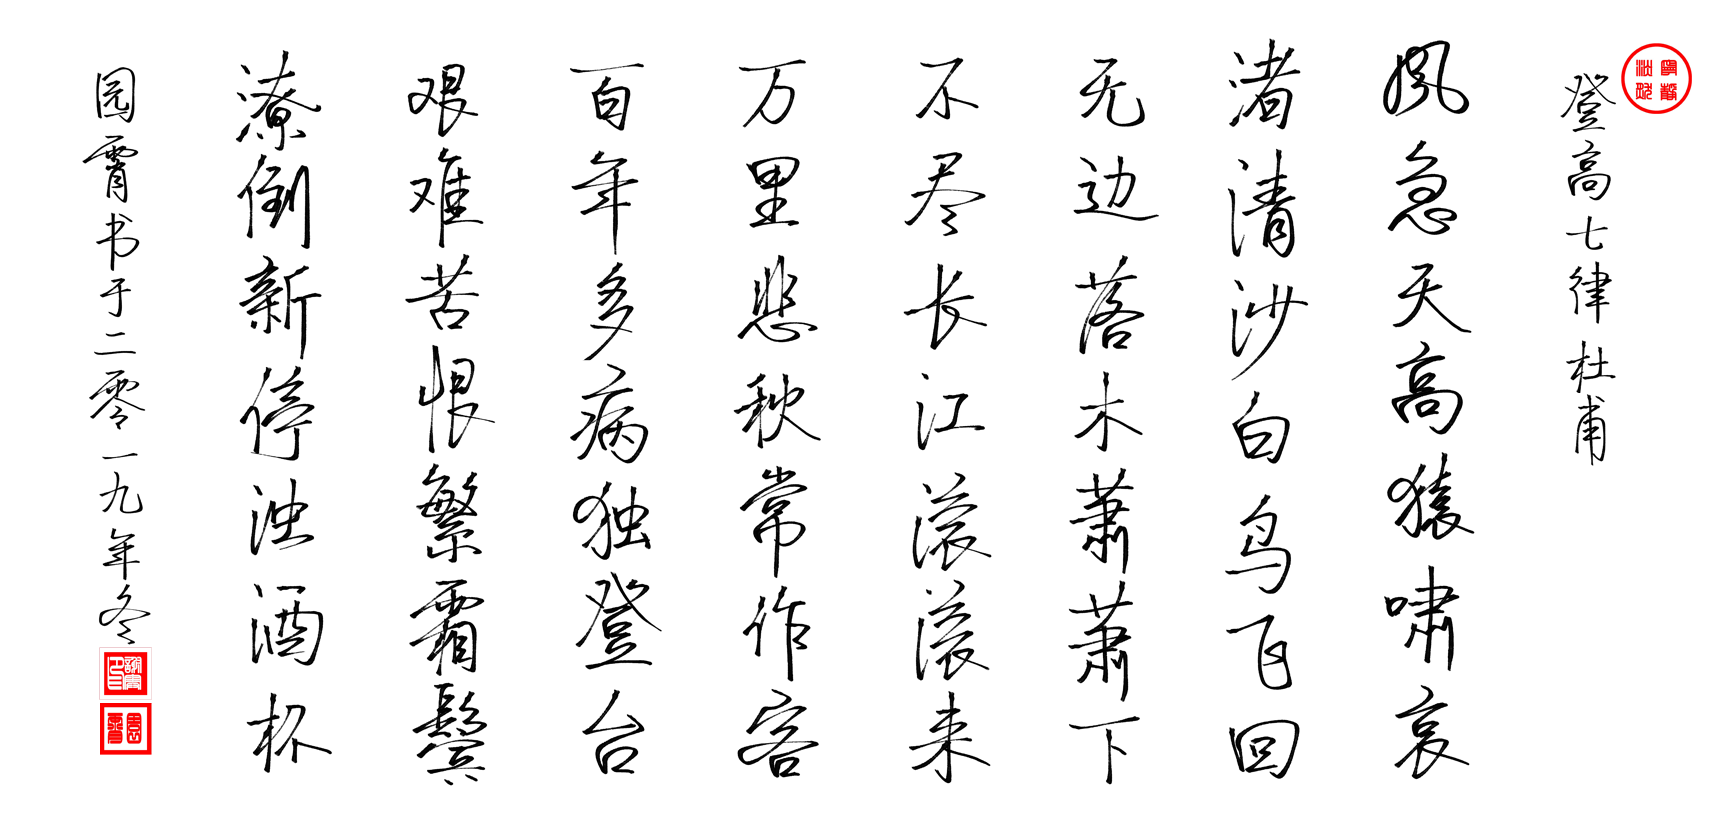 登高七律杜甫
风急天高猿啸哀
渚清沙白鸟飞回
无边落木萧萧下
不尽长江滚滚来
万里悲秋常作客
百年多病独登台
艰难苦恨繁霜鬓
潦倒新停浊酒杯
园霄书于二零一九年冬